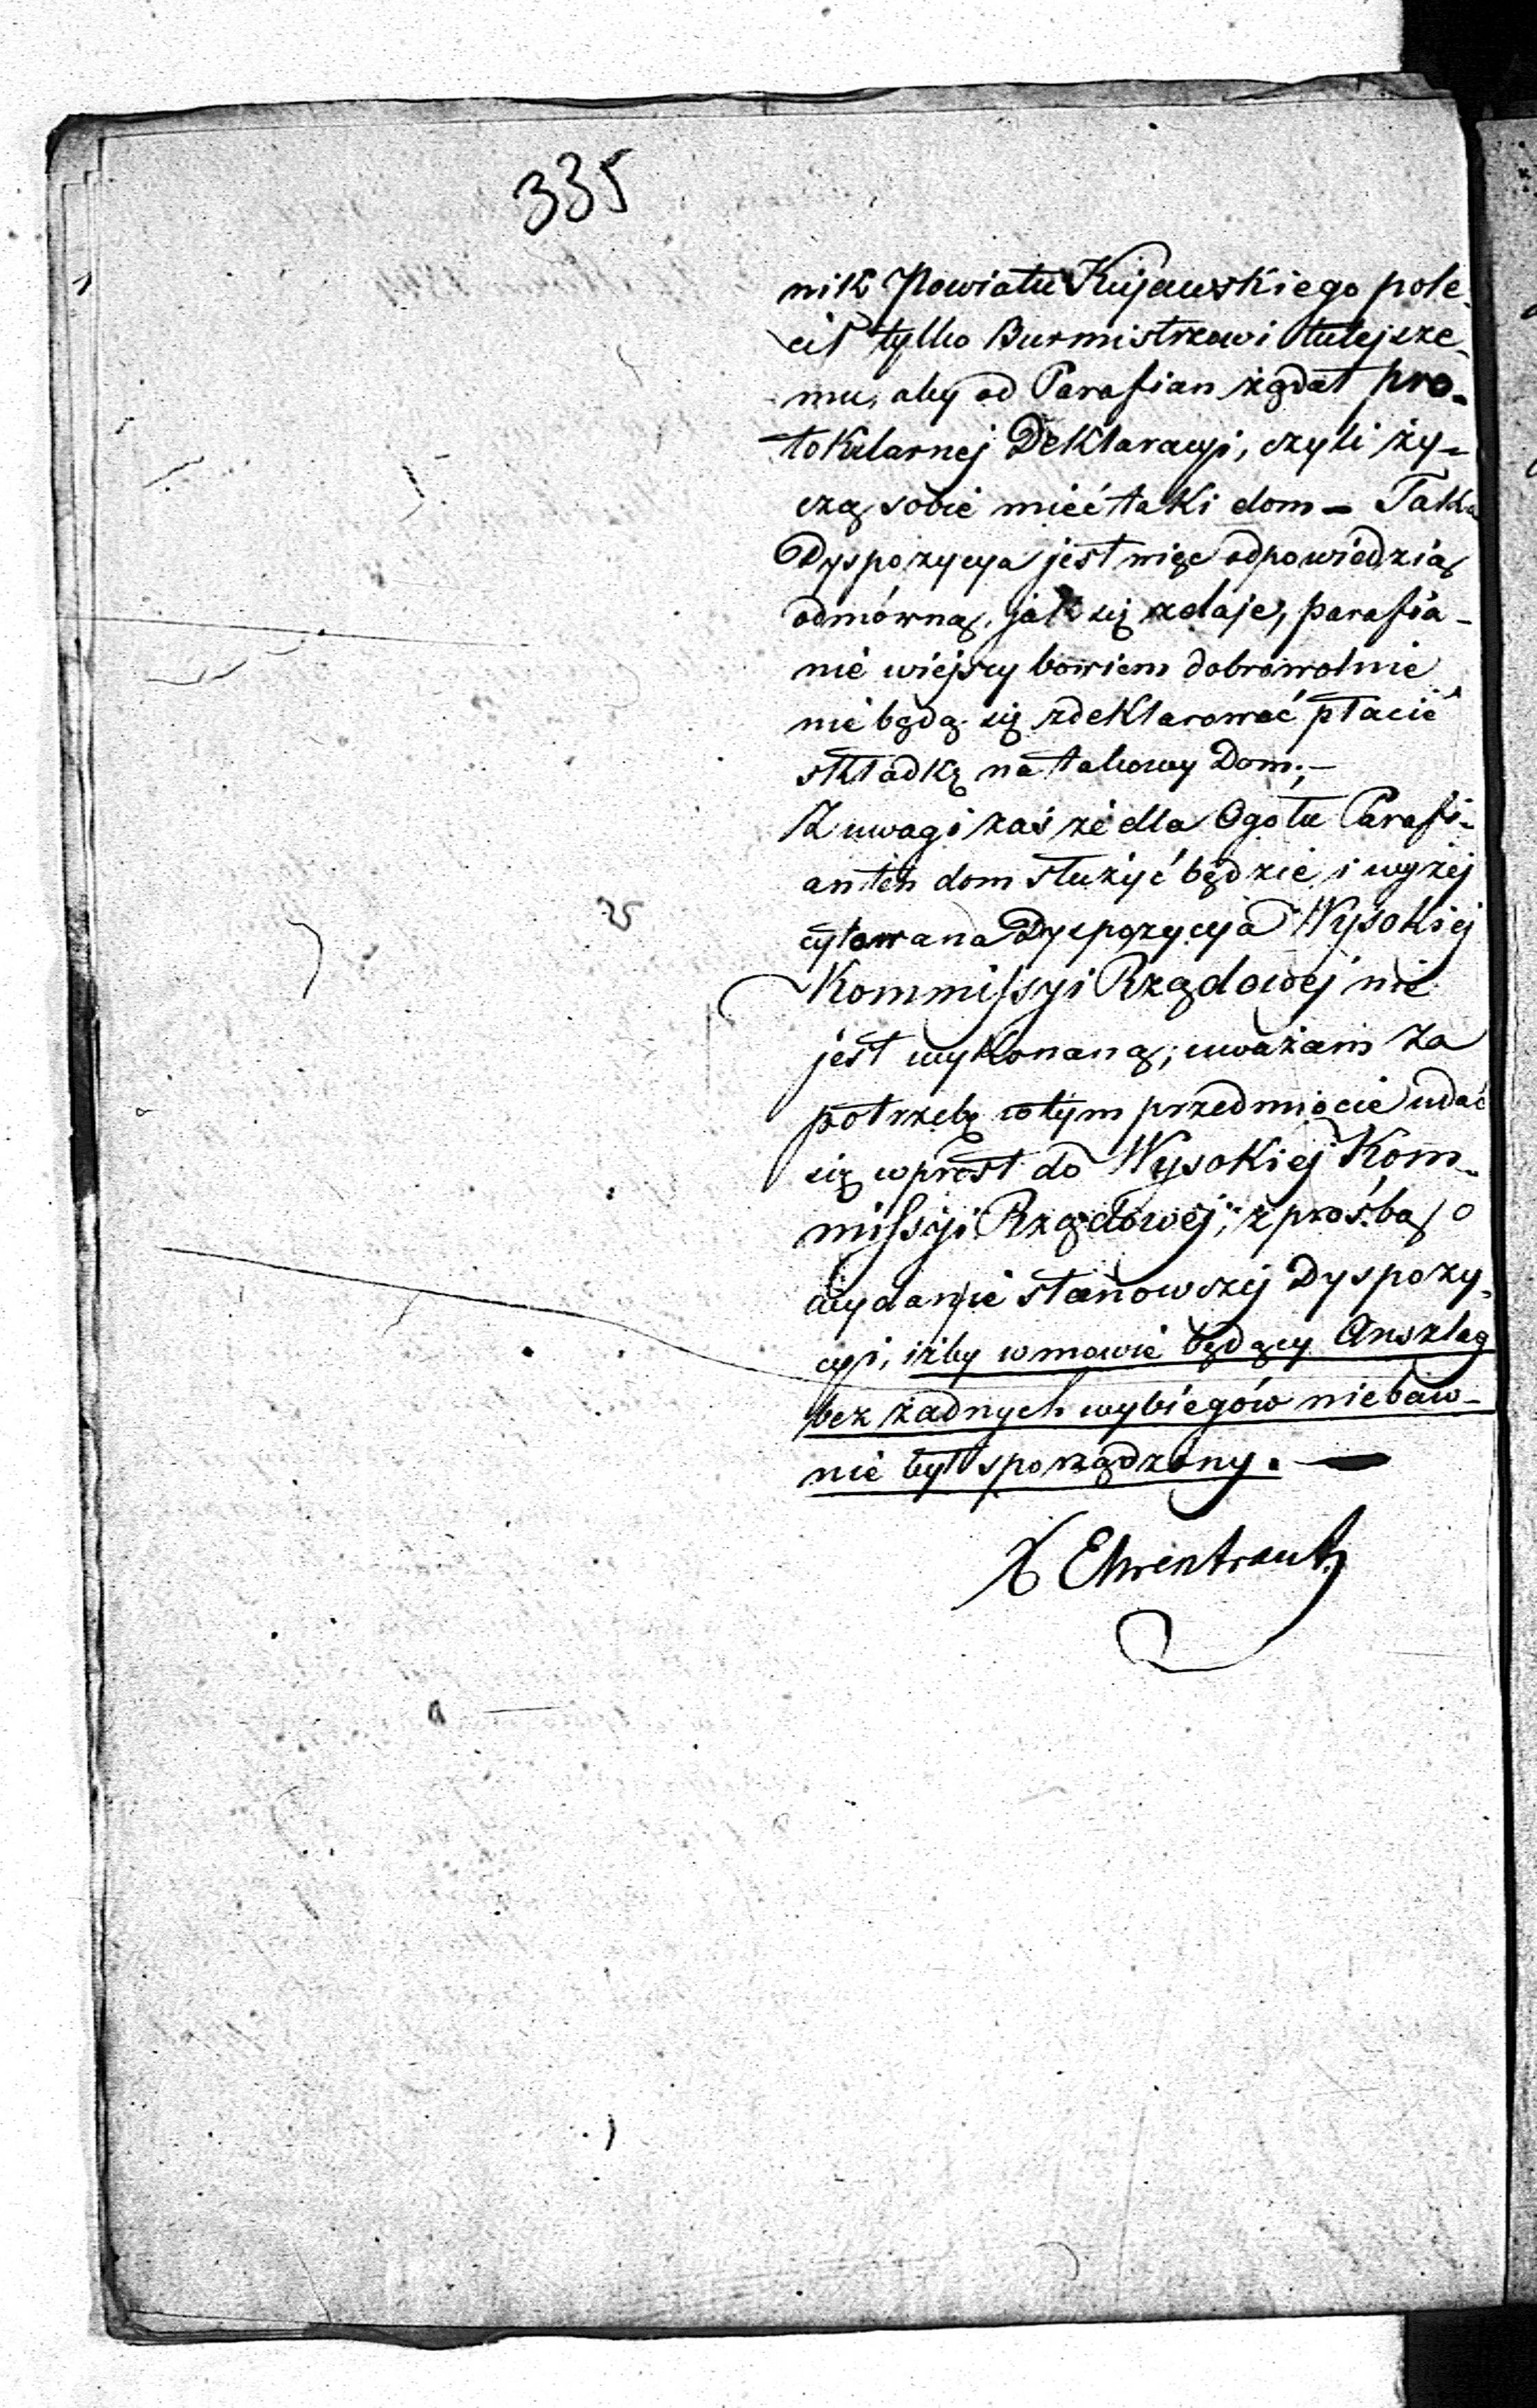 335
nik Powiatu Kujawskiego pole-
cił tylko Burmistrzowi tutejsze-
mu, aby od Parafian żądał pro-
tokularnej Deklaracyi, czyli ży-
czą sobie mieć taki dom – Taka
Dyspozycya jest więc odpowiedzią
odmówną, jak się zdaje, parafia-
nie wiejscy bowiem dobrowolnie
nie będą się zdeklarować płacić
składkę na takowy Dom; –
Z uwagi zaś że dla Ogołu Parafi-
an ten dom służyć będzie i wyżej
cytowana Dyspozycya Wysokiej
Kommissyi Rządowej nie
jest wykonaną; uważam za
potrzebę w tym przedmiocie udać
się wprost do Wysokiej Kom-
missyi Rządowej; z prośbą o
wydanie stanowszej Dyspozy-
cyi, iżby w mowie będący Anszlag
bez żadnych wybiegów niebaw-
nie był sporządzony. —
X Ehrentraut